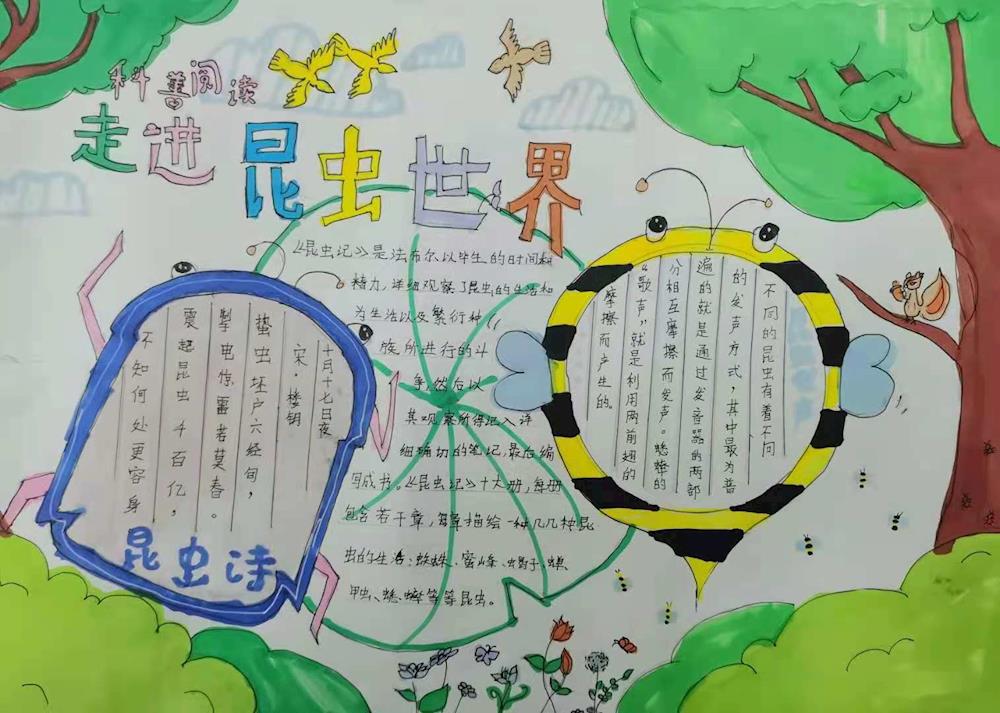 科善阅读
走进昆虫世界
《昆虫记》是法布尔以毕生的时间和
精力,详细观察了昆虫的生活和
为生活以及繁衍种
族所进行的斗
争,然后以
其观察所得记入详
细确切的笔记,最后编
写成书。《昆虫记》十大册,每册
包含若干章,每章描绘一种几几种昆
虫的生活:蜘蛛、蜜蜂、蝎子、蝉
甲虫、蟋蟀等等昆虫。
十月十七日夜
宋,楼钥
蛰虫坯户六经旬,
掣电惊雷若莫春。
震起昆虫4百亿,
不知何处更容身
昆虫诗
不同的昆虫有着不同
的发声方式,其中最为普
遍的就是通过发音器的两部
分相互摩擦而发声。蟋蟀的
“歌声”就是利用两前翅的
摩擦而产生的。